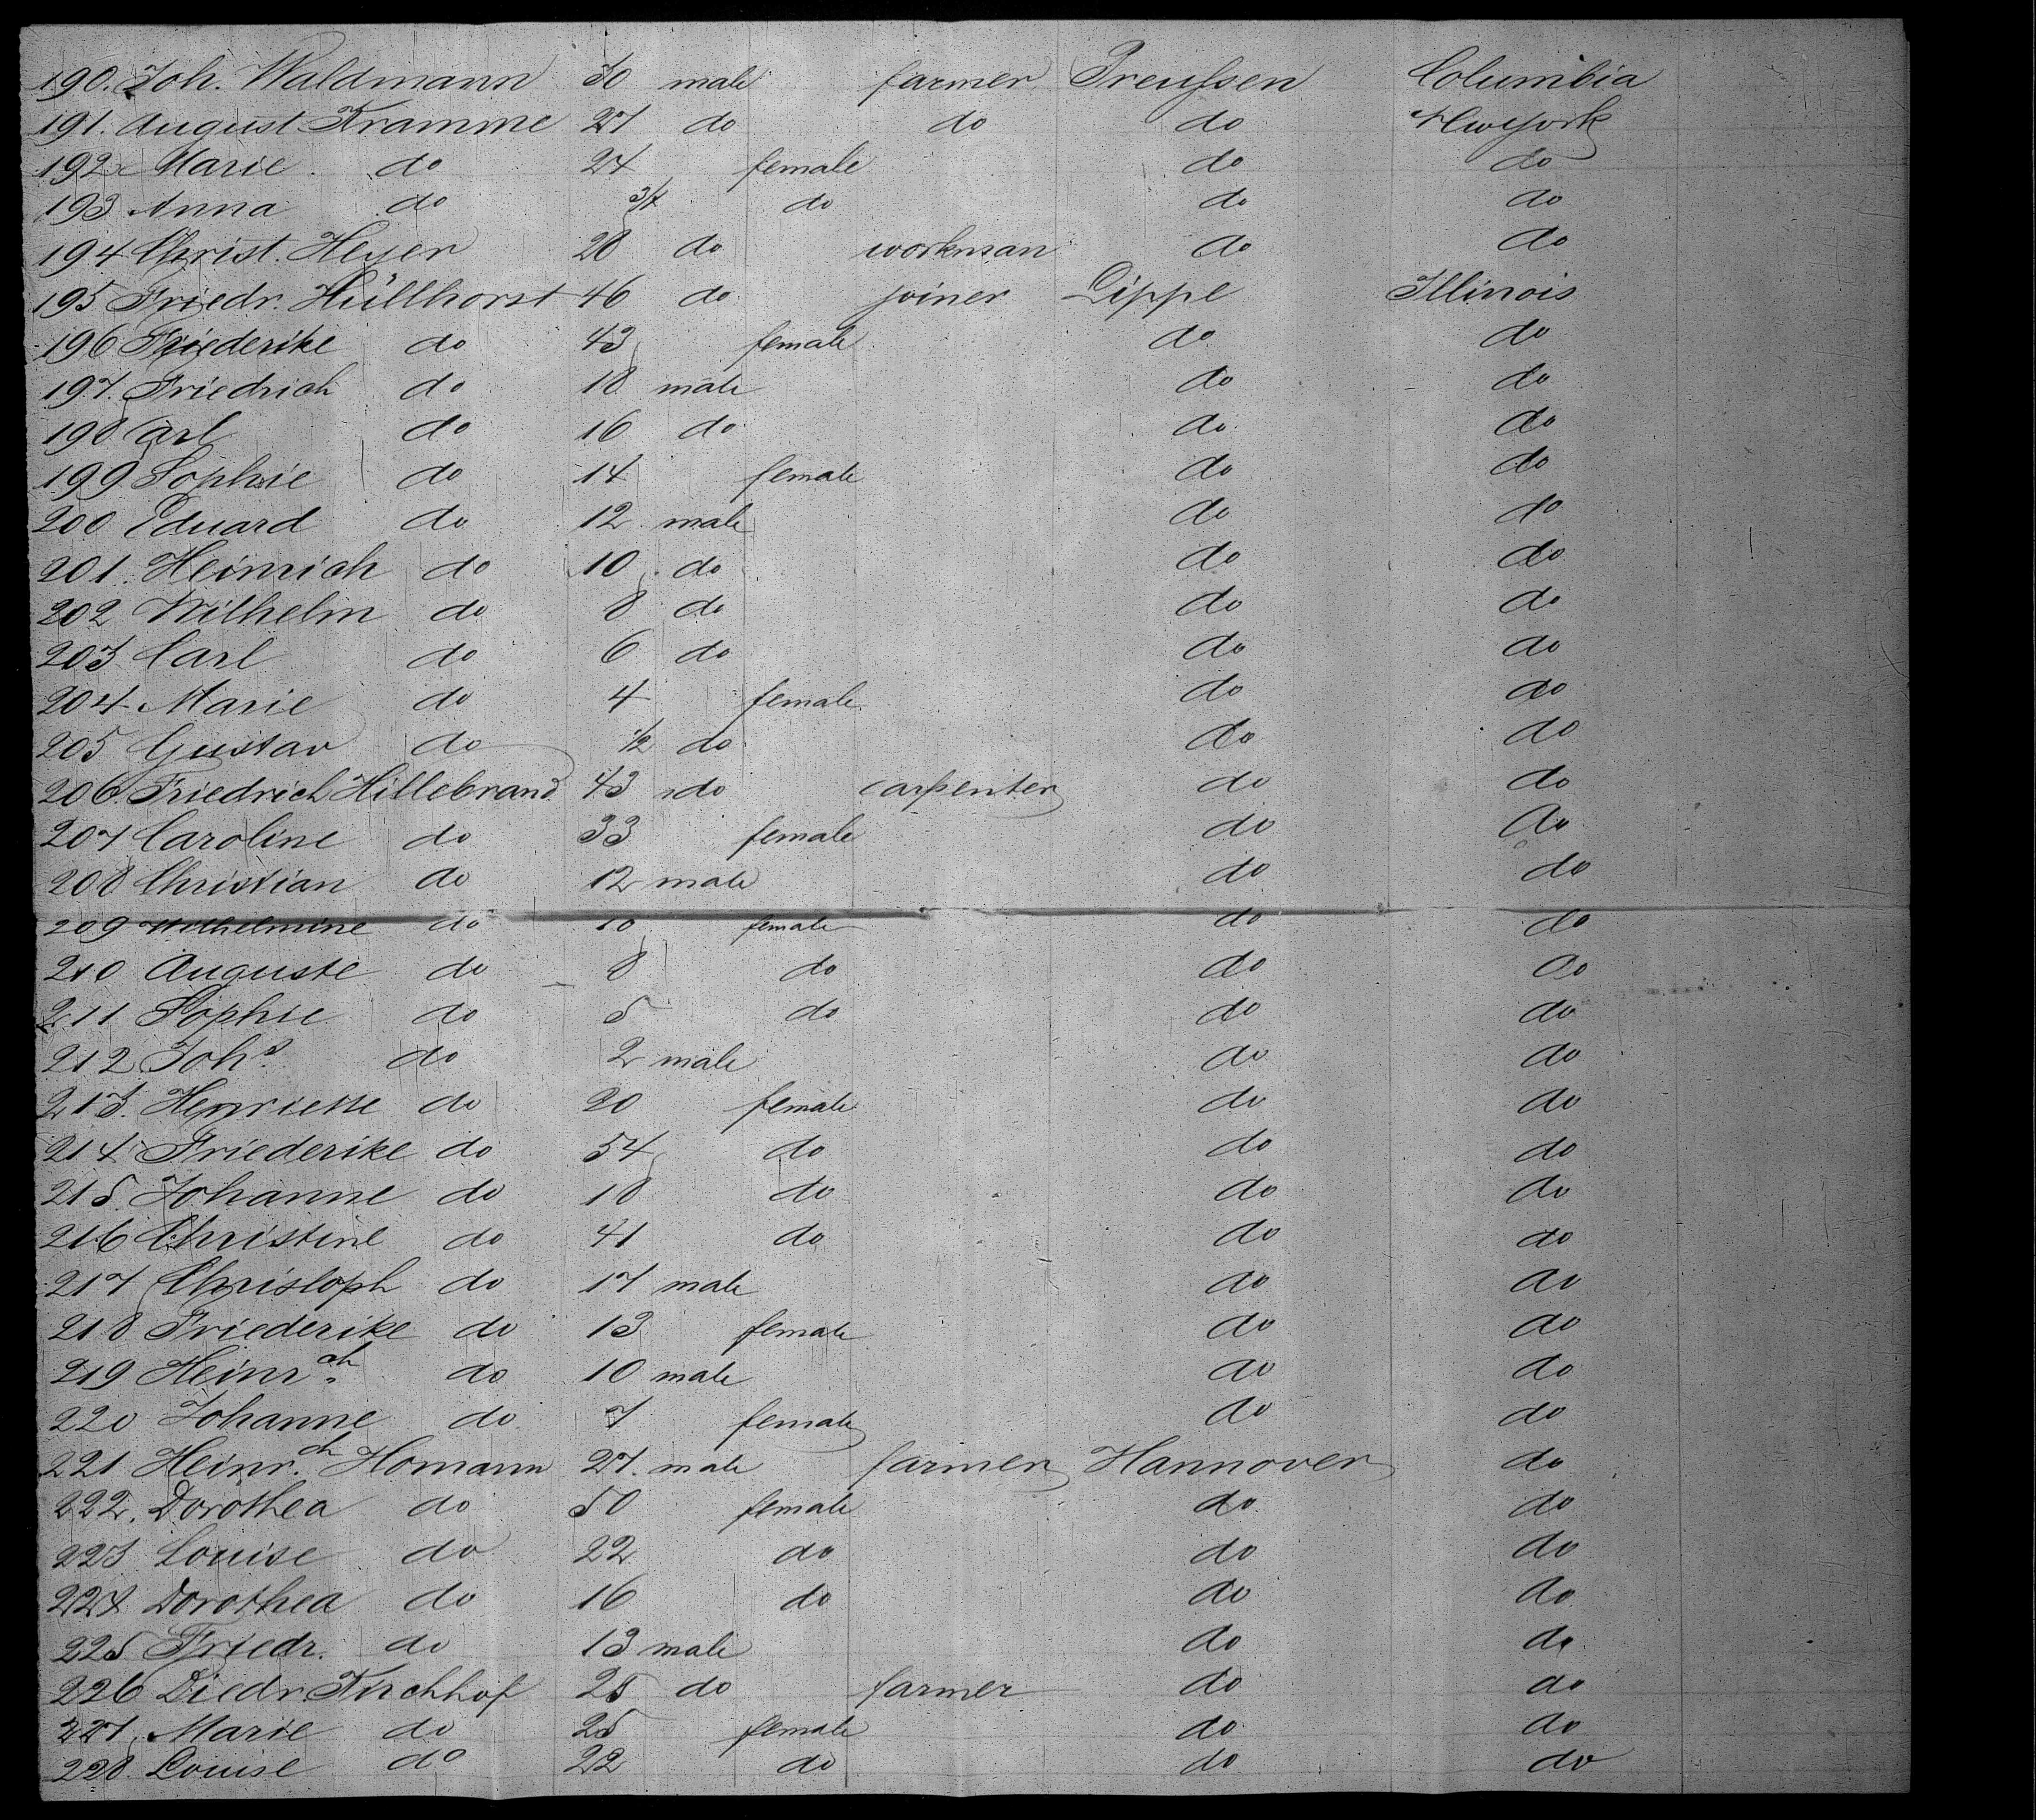 190. Joh. Waldmann 30 male farmer Preußen Columbia
191. August Kramme 27 do do do Newyork
192 Marie do 24 female do do
193 Anna do 3/4 do do do
194 Christ. Heyer 28 do workman do do
195 Friedr. Hüllhorst 46 do joiner Lippe Illinois
196 Friederike do 43 female do do
197. Friedrich do 18 male do do
198 Carl do 16 do do do
199 Sophie do 14 female do do
200 Eduard do 12 male do do
201. Heinrich do 10 do do do
202 Wilhelm do 8 do do do
203 Carl do 6 do do do
204 Marie do 4 female do do
205 Gustav do 1/2 do do do
206. Friedrich Hillebrand 43 do carpenter do do
207 Caroline do 33 female do do
208 Christian do 12 male do do
209 Wilhelmine do 10 female do do
210 Auguste do 8 do do do
211 Sophie do 5 do do do
212 Johs. do 2 male do do
213. Henriette do 20 female do do
214 Friederike do 54 do do do
215. Johanne do 18 do do do
216 Christine do 41 do do do
217 Christoph do 17 male do do
218 Friederike do 13 female do do
219 Heinrch. do 10 male do do
220 Johanne do 7 female do do
221 Heinr.ch Homann 27. male farmer Hannover do
222. Dorothea do 50 female do do
223 Louise do 22 do do do
224 Dorothea do 16 do do do
225 Friedr. do 13 male do do
226 Diedr. Kirchhof 25 do farmer do do
227. Marie do 25 female do do
228. Louise do 22 do do do